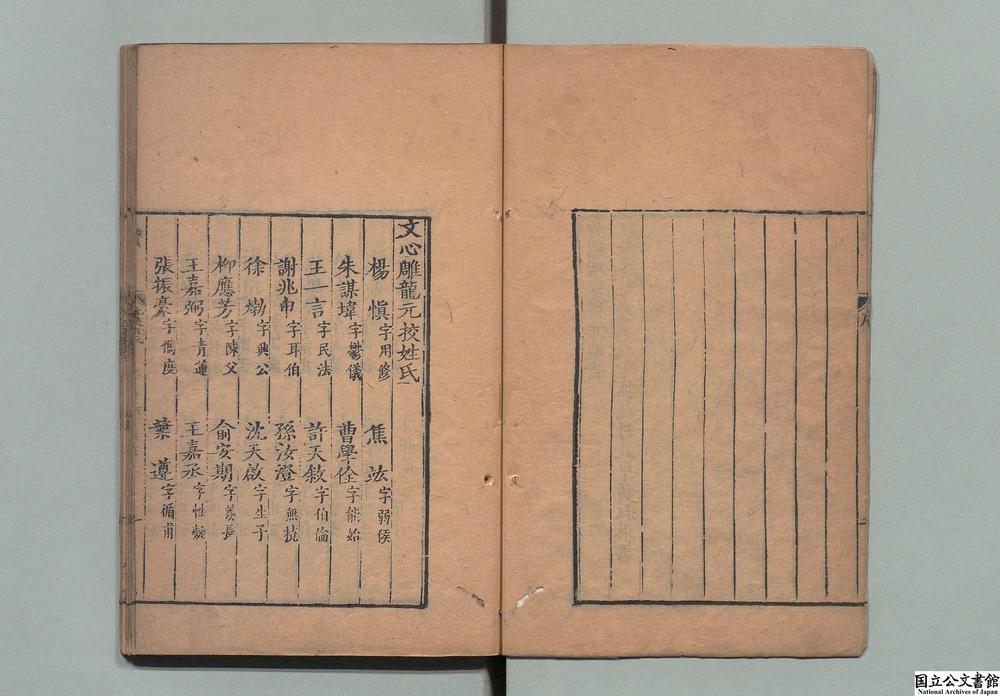 文心雕龍元挍姓氏
楊慎字用修 焦竑字弱侯
朱謀㙔字鬱儀 曹學佺字能始
王一言字民法 許天敘字伯倫
謝兆申字耳伯 孫汝澄字無撓
徐𤊹字興公 沈天啟字生予
柳應芳字陳父 俞安期字羨長
王嘉弼字青蓮 王嘉丞字性凝
張振豪字儁度 葉遵字循甫
国立公文書館
National Archives of Japan